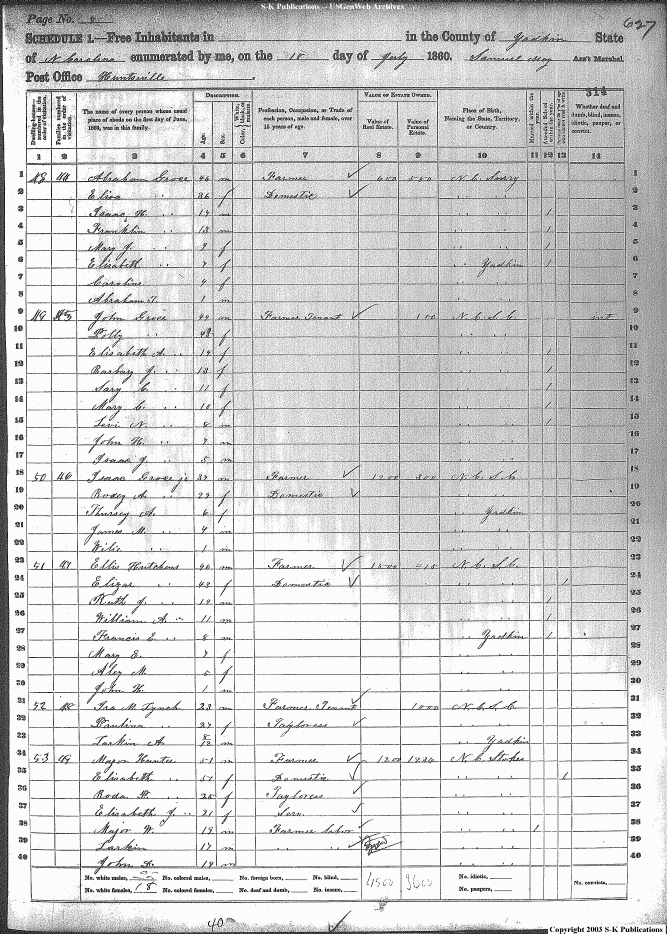 S-K Publications -- USGenWeb Archives
Page No. 627
SCHEDULE 1.—Free Inhabitants in in the County of Yadkin State
of N Carolina enumerated by me, on the 10 day of July 1860. Samuel Ass't Marshal.
Post Office Huntsville
314
Dwelling-houses numbered in the order of visitation.
Families numbered in the order of visitation.
The name of every person whose usual place of abode on the first day of June, 1860, was in this family.
DESCRIPTION.
Age.
Sex.
Color,
Profession, Occupation, or Trade of each person, male and female, over 15 years of age.
VALUE OF ESTATE OWNED.
Value of Real Estate.
Value of Personal Estate.
Place of Birth, Naming the State, Territory, or Country.
Married within the year.
Whether deaf and dumb, blind, insane, idiotic, pauper, or convict.
1 2 3 4 5 6 7 8 9 10 11 12 13 14
1 48 44 Abraham Groce 46 m Farmer 600 500 N. C. Surry 1
2 Eliza 36 f Domestic 2
3 Isaac H. 17 m 1 3
4 Franklin 13 m 1 4
5 Mary J. 9 f 1 5
6 Elisabeth 7 f Yadkin 1 6
7 Caroline 4 f 7
8 Abraham T. 1 m 8
9 49 45 John Groce 44 m Farmer Tenant 100 N. C. S. C. 9
10 Polly 48 f 10
11 Elisabeth A. 14 f 1 11
12 Barbary J. 13 f 1 12
13 Sary C. 11 f 1 13
14 Mary C. 10 f 1 14
15 Levi N. 8 m 1 15
16 John H. 7 m 16
17 Isaac J. 5 m 17
18 50 46 Isaac Groce jr 37 m Farmer 1200 300 N. C. S. C. 18
19 A. 29 f Domestic 19
20 A. 6 f Yadkin 20
21 James M. 4 m 21
22 1 m 22
23 51 47 Ellis Hutchens 46 m Farmer 1500 410 N. C. S. C. 23
24 43 f Domestic 1 24
25 Ruth J. 14 f 1 25
26 William A. 11 m 1 26
27 Francis E. 8 m Yadkin 1 27
28 Mary E. 7 f 28
29 Aley M. 5 f 29
30 John H. 1 m 30
31 52 48 Ira M. Lynch 23 m Farmer Tenant 1000 N. C. S. C. 31
32 Paulina 27 f Tayloress 32
33 Larkin A. 8/12 m Yadkin 33
34 53 49 Major Hunter 51 m Farmer 1200 1230 N. C. Stokes 34
35 Elisabeth 51 f Domestic 1 35
36 Roda 25 f Tayloress 36
37 Elizabeth J. 21 f Serv. 37
38 Major W. 19 m Farmer labor 1 38
39 Larkin 17 m 39
40 John 14 m 40
No. white males, No. colored males, No. foreign born, No. blind, No. idiotic,
No. white females, 18 No. colored females, No. deaf and dumb, No. insane, 4500 3600 No. paupers, No. convicts,
40
Copyright 2003 S-K Publications